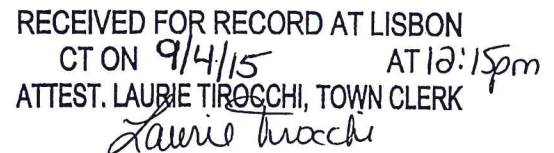 RECEIVED FOR RECORD AT LISBON
CT ON 9/4/15 AT 12:15pm
ATTEST. LAURIE TIROCCHI, TOWN CLERK
Laurie Tirocchi